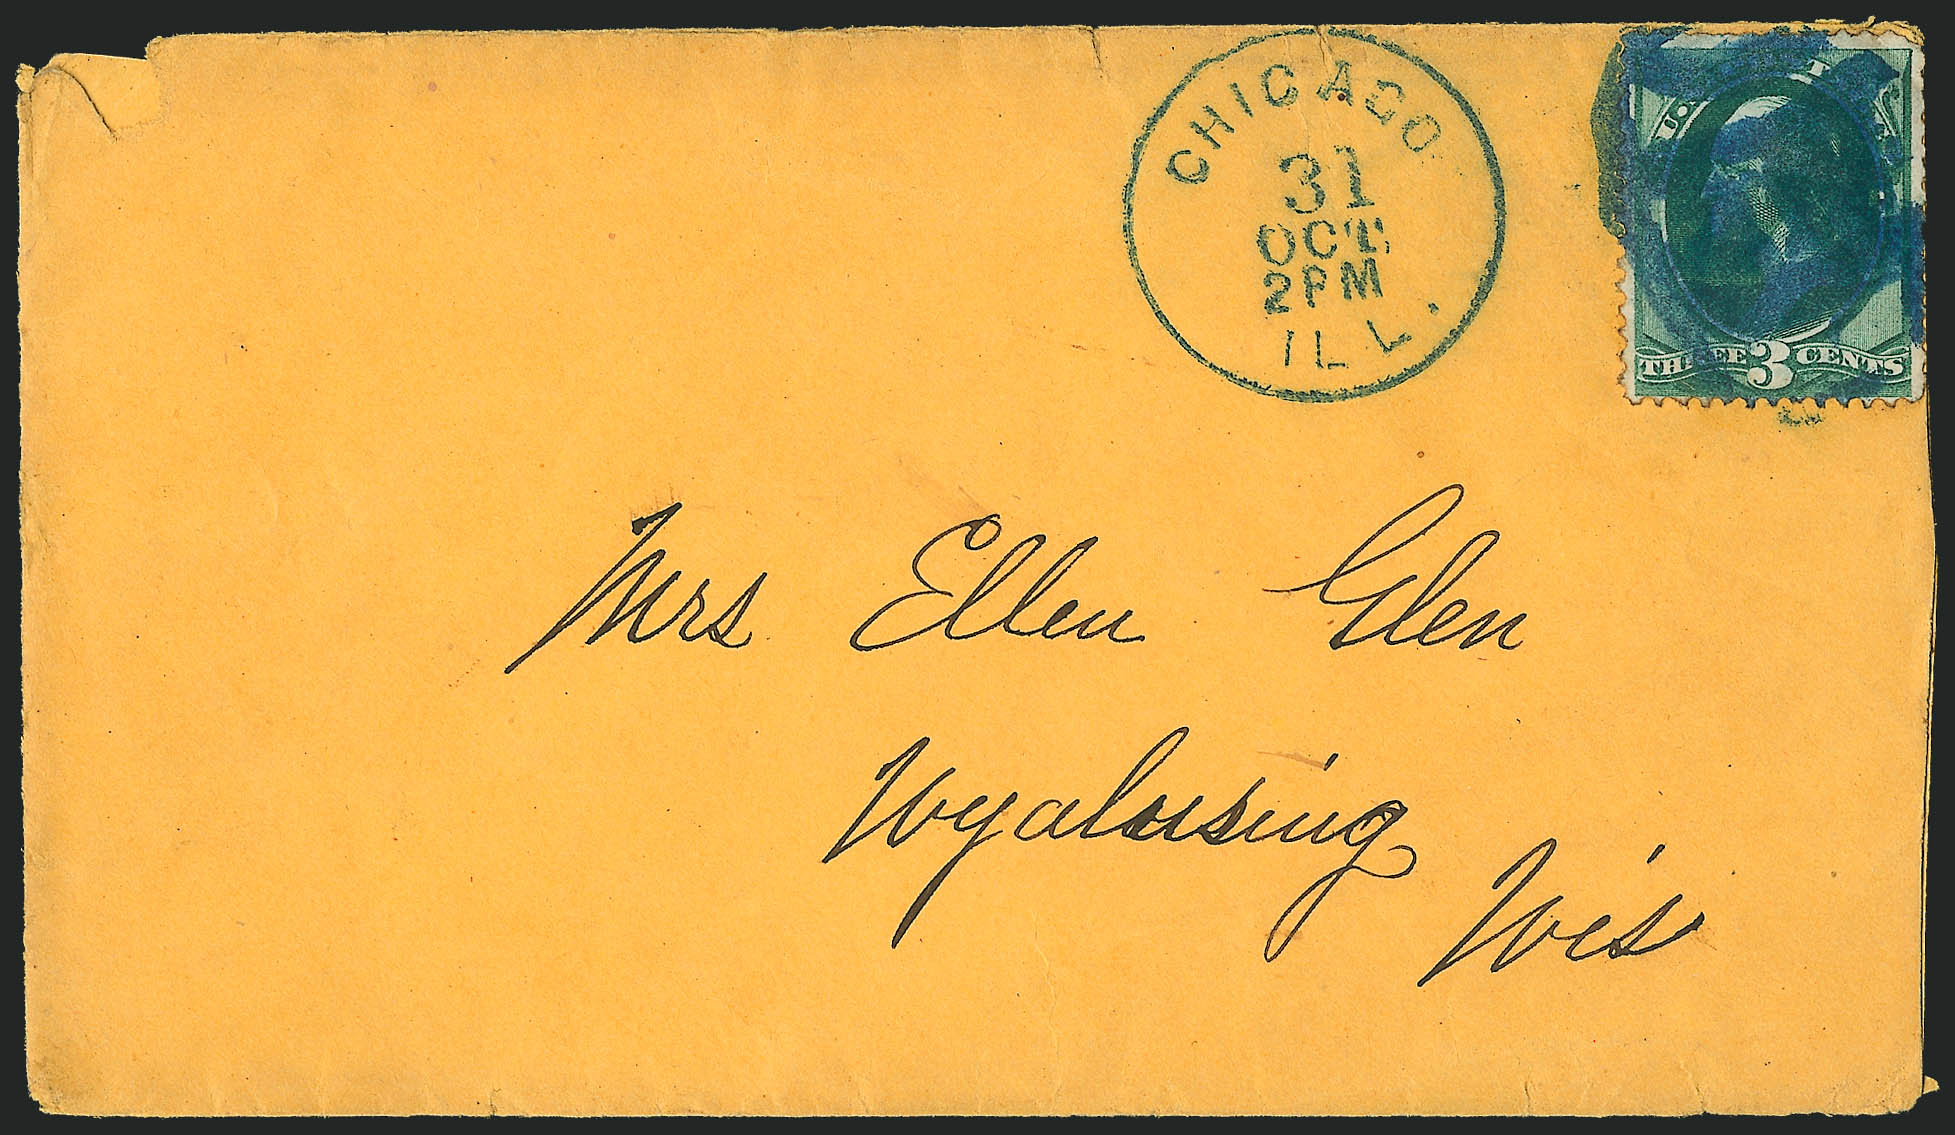 CHICAGO.
31
OCT
2 PM
ILL.
U.S.
THREE 3 CENTS
Mrs Ellen Glen
Wyalusing
Wis